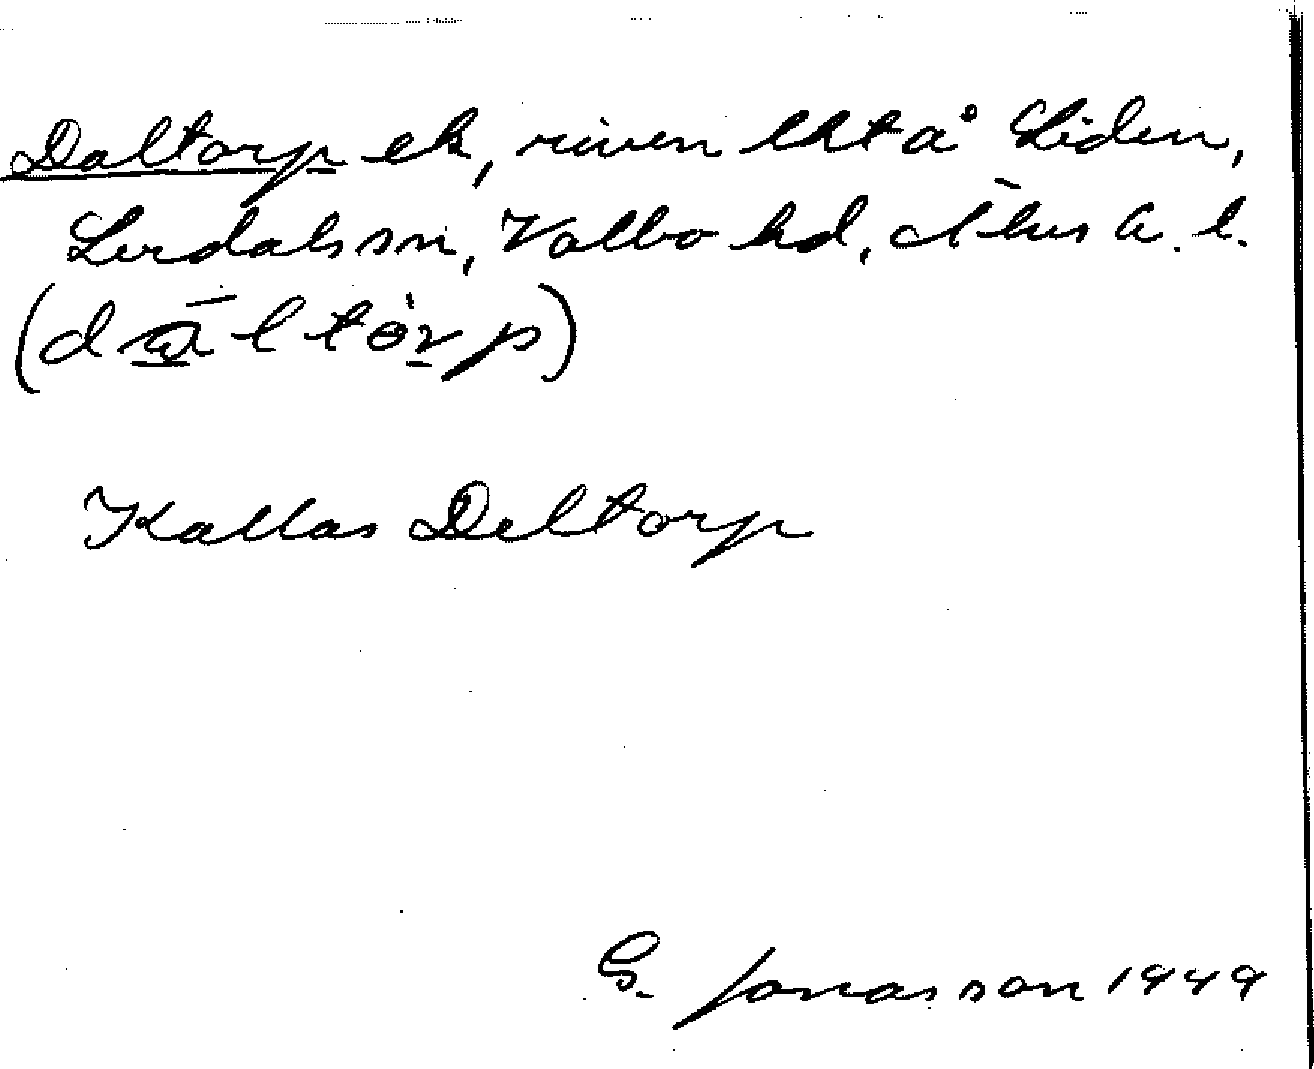 Daltorp ek, riven lht å Liden,
Lerdals sn, Valbo hd, Älvs b. l.
(dɑ̄ltȯrp)
Kallas Deltorp
G. Jonasson 1949